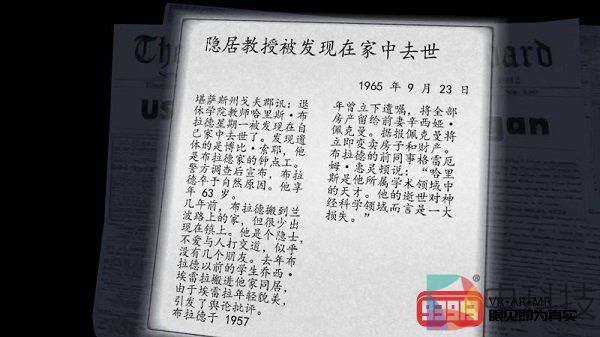 The
ard
us
gan
隐居教授被发现在家中去世
1965 年 9 月 23 日
堪萨斯州戈夫郡讯：退
休学院教师哈里斯·布
拉德星期一被发现在自
己家中去世了。发现遗
体的是博比·索耶，他
是布拉德家的钟点工。
警方调查后宣布，布拉
德卒于自然原因。他享
年 63 岁。
几年前，布拉德搬到兰
波路上的家，但很少出
现在镇上。他是个隐士，
不爱与人打交道，似乎
没有几个朋友。去年布
拉德以前的学生乔西·
埃雷拉搬进他家同居，
由于埃雷拉年轻貌美，
引发了舆论批评。
布拉德于 1957
年曾立下遗嘱，将全部
房产留给前妻辛西娅·
佩克曼。据报佩克曼将
立即变卖房子和财产。
布拉德的前同事格雷厄
姆·惠灵顿说：“哈里
斯是他所属学术领域中
的天才。他的逝世对神
经科学领域而言是一大
损失。”
93913
®
科技
VR·AR·MR
眼见即为真实